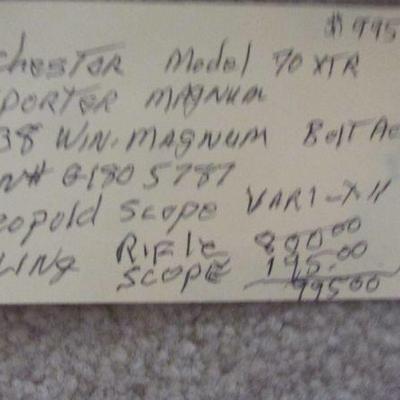 $995
chesTer Model 70 XTR
PORTER MAGNUM
38 WIN. MAGNUM BolT Ac
N# G1805787
eopold Scope VARI-X-II
LING RIFLE 800.00
SCOPE 195.00
995.00